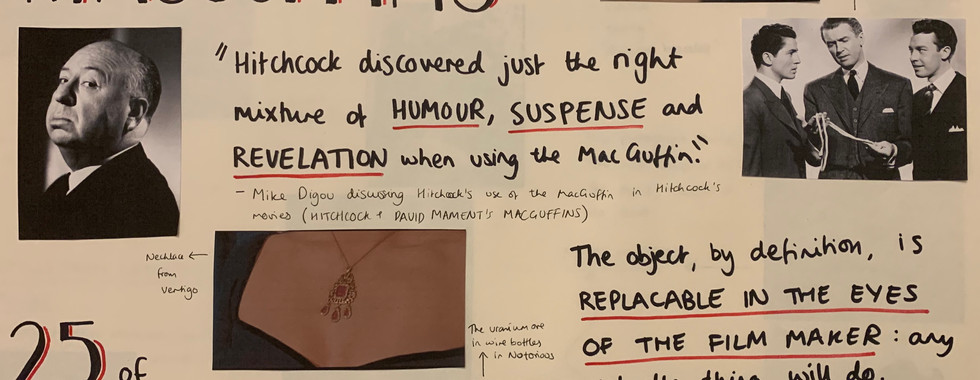 "Hitchcock discovered just the right
mixture of HUMOUR, SUSPENSE and
REVELATION when using the MacGuffin."
- Mike Digou discussing Hitchcock's use of the MacGuffin in Hitchcock's
movies (HITCHCOCK + DAVID MAMENT'S MACGUFFINS)
Necklace
from
Vertigo
The uranium ore
in wine bottles
in Notorious
The object, by definition, is
REPLACABLE IN THE EYES
OF THE FILM MAKER: any
thing will do.
25 of